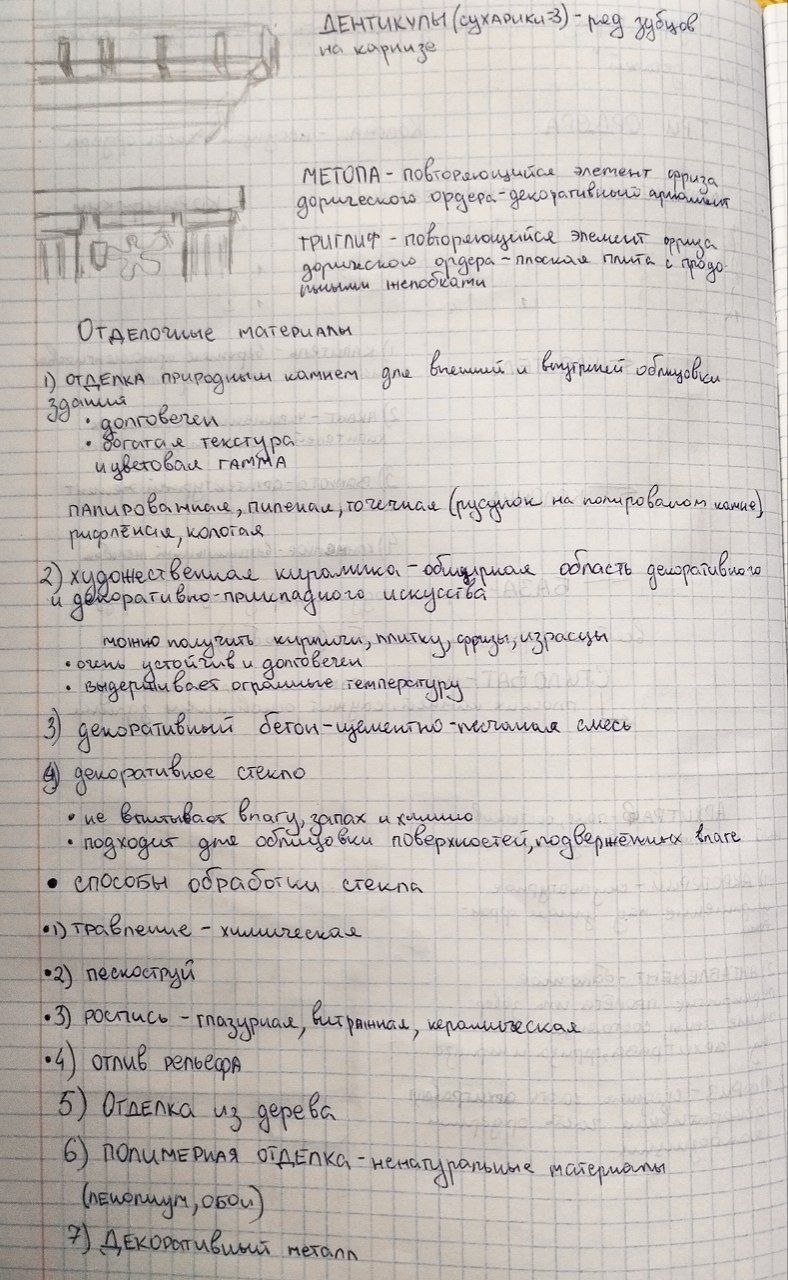 ДЕНТИКУЛЫ (СУХАРИКИ=3) - ряд зубцов
на карнизе
МЕТОПА - повторяющийся элемент фриза
дорического ордера-декоративный орнамент
ТРИГЛИФ - повторяющийся элемент фриза
дорижского ордера - плоская плита с продо
льными желобками
Отделочные материалы
1) отделка природным камнем для внешний и внутреней облицовки
здания
• долговечен
• богатая текстура
и цветовая гамма
папироважная, пиленая, точечная (русунок на полировалом камне)
рифлёная, колотая
2) художественная кирамика - обширная область декоративного
и декоративно-прикладного искусства
можно получить кирпичи, плитку, фризы, израсцы
• очень устойчив и долговечен
• выдерживает огромные температуру
3) декоративный бетон - цементно-песчаная смесь
4) декоративное стекло
• не впитывает влагу, запах и химию
• подходит для облицовки поверхностей, подвержённых влаге
• способы обработки стекла
• 1) травление - химическая
• 2) пескоструй
• 3) роспись - глазурная, витражная, керамическая
• 4) отлив рельефа
5) Отделка из дерева
6) полимерная отделка - ненатуральные материалы
(линолиум, обои)
7) Декоративный металл